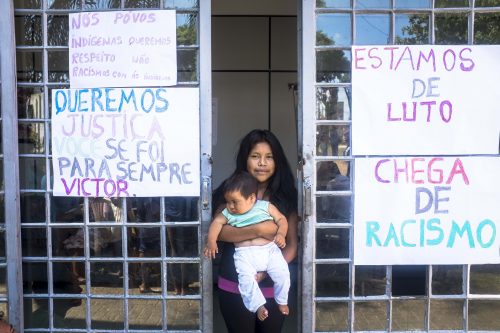 NÓS POVOS
INDÍGENAS QUEREMOS
RESPEITO NÃO
RACISMOS COM OS INDÍGENA
QUEREMOS
JUSTIÇA
VOCÊ SE FOI
PARA SEMPRE
VICTOR.
ESTAMOS
DE
LUTO
CHEGA
DE
RACISMO